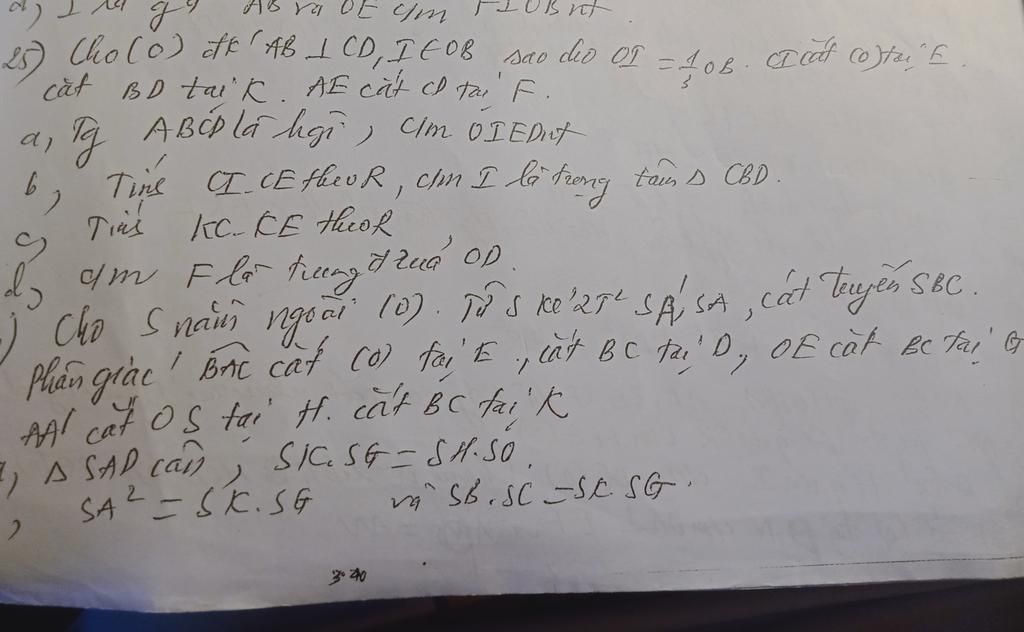 d, I là AB và OE c/m
25) Cho (O) đk AB ⊥ CD, I ∈ OB sao cho OI = 1/3 OB. CI cắt (O) tại E.
cắt BD tại K. AE cắt CD tại F.
a, Tg ABCD là hgì, c/m OIED nt
b, Tính CI.CE theo R, c/m I là trọng tâm Δ CBD.
c, Tính KC.KE theo R
d, c/m F là trung đ của OD.
) Cho S nằm ngoài (O). Từ S kẻ 2T² SA', SA, cát tuyến SBC.
Phân giác BAC cắt (O) tại E, cắt BC tại D, OE cắt BC tại G
AA' cắt OS tại H. cắt BC tại K
, Δ SAD cân, SK.SG = SH.SO.
, SA² = SK.SG và SB.SC = SK.SG.